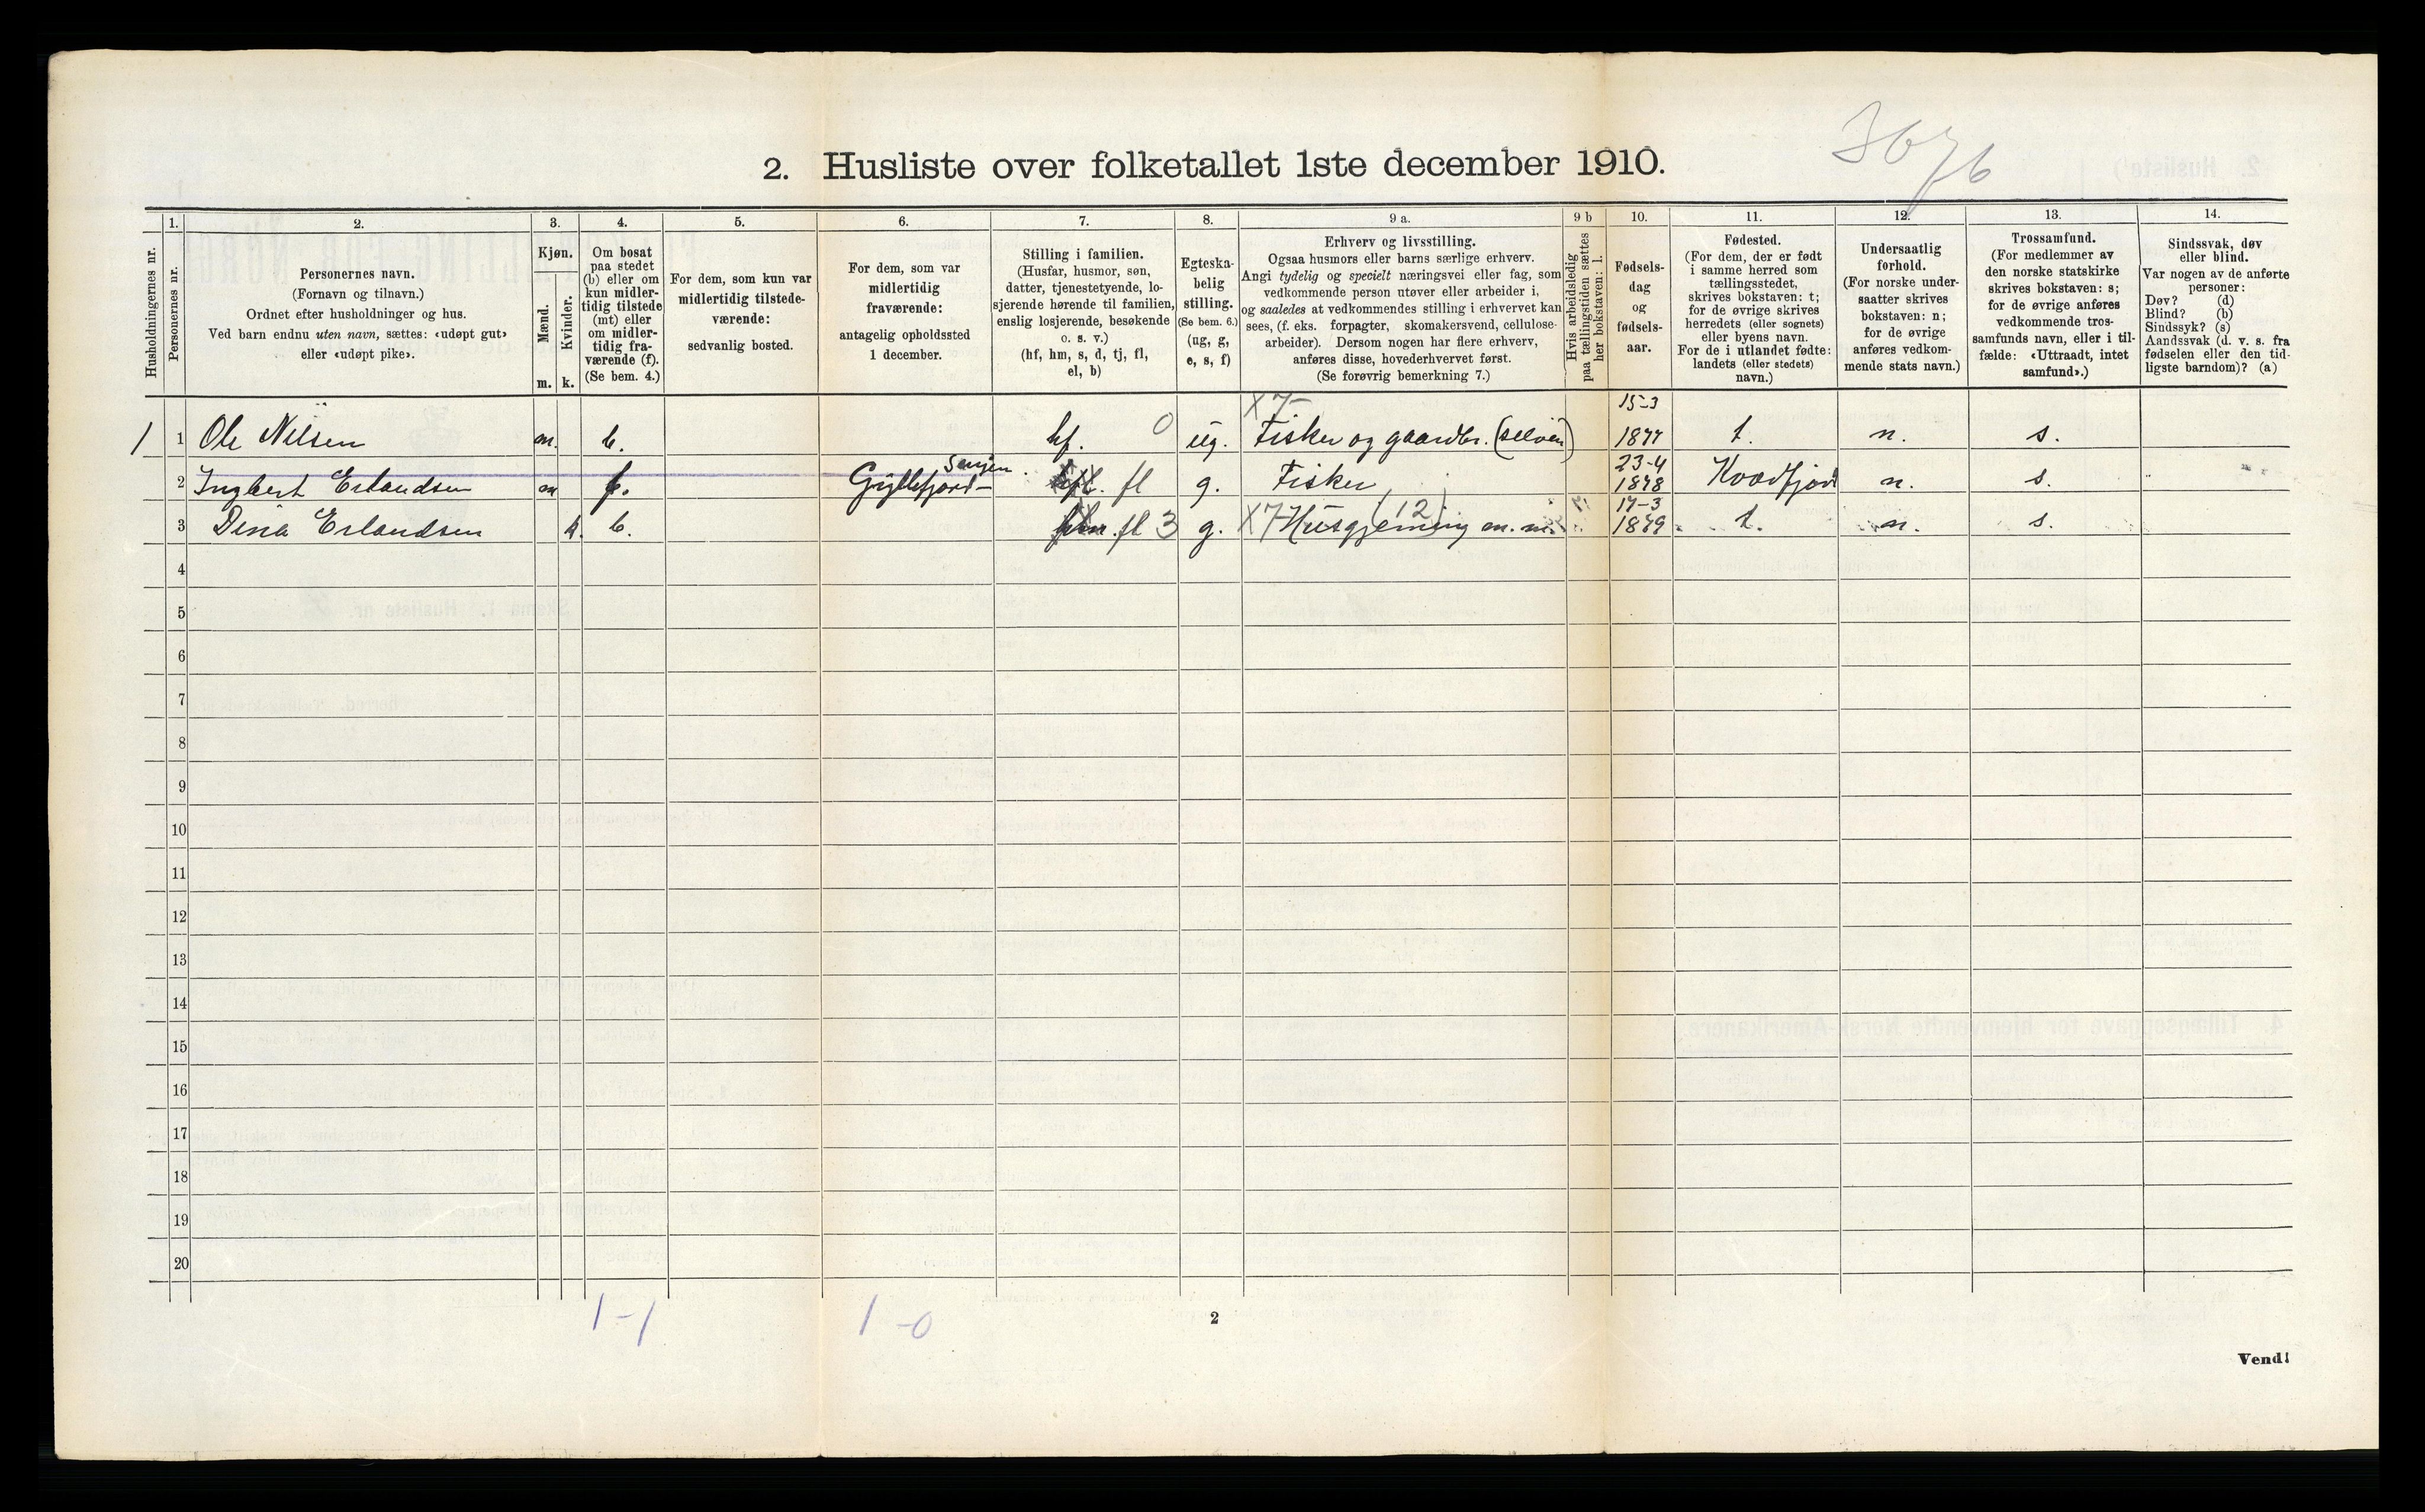 3676
2. Husliste over folketallet 1ste december 1910.
Husholdningernes nr.
1.
Personernes nr.
2.
Personernes navn.
(Fornavn og tilnavn.)
Ordnet efter husholdninger og hus.
Ved barn endnu uten navn, sættes: «udøpt gut»
eller «udøpt pike».
3.
Kjøn.
Mænd.
Kvinder.
m. k.
4.
Om bosat
paa stedet
(b) eller om
kun midler-
tidig tilstede
(mt) eller
om midler-
tidig fra-
værende (f).
(Se bem. 4.)
5.
For dem, som kun var
midlertidig tilstede-
værende:
sedvanlig bosted.
6.
For dem, som var
midlertidig
fraværende:
antagelig opholdssted
1 december.
7.
Stilling i familien.
(Husfar, husmor, søn,
datter, tjenestetyende, lo-
sjerende hørende til familien,
enslig losjerende, besøkende
o. s. v.)
(hf, hm, s, d, tj, fl,
el, b)
8.
Egteska-
belig
stilling.
(Se bem. 6.)
(ug, g,
e, s, f)
9 a.
Erhverv og livsstilling.
Ogsaa husmors eller barns særlige erhverv.
Angi tydelig og specielt næringsvei eller fag, som
vedkommende person utøver eller arbeider i,
og saaledes at vedkommendes stilling i erhvervet kan
sees, (f. eks. forpagter, skomakersvend, cellulose-
arbeider). Dersom nogen har flere erhverv,
anføres disse, hovederhvervet først.
(Se forøvrig bemerkning 7.)
9 b
Hvis arbeidsledig
paa tællingstiden sættes
her bokstaven: l.
10.
Fødsels-
dag
og
fødsels-
aar.
11.
Fødested.
(For dem, der er født
i samme herred som
tællingsstedet,
skrives bokstaven: t;
for de øvrige skrives
herredets (eller sognets)
eller byens navn.
For de i utlandet fødte:
landets (eller stedets)
navn.)
12.
Undersaatlig
forhold.
(For norske under-
saatter skrives
bokstaven: n;
for de øvrige
anføres vedkom-
mende stats navn.)
13.
Trossamfund.
(For medlemmer av
den norske statskirke
skrives bokstaven: s;
for de øvrige anføres
vedkommende tros-
samfunds navn, eller i til-
fælde: «Uttraadt, intet
samfund».)
14.
Sindssvak, døv
eller blind.
Var nogen av de anførte
personer:
Døv? (d)
Blind? (b)
Sindssyk? (s)
Aandssvak (d. v. s. fra
fødselen eller den tid-
ligste barndom)? (a)
X7- 15-3
1 1 Ole Nilsen m. b. hf. 0 ug. Fisker og gaardbr. (selveier) 1877 t. n. s.
Senjen 23-4
2 Ingbert Erlandsen m f. Gryllefjord- fl g. Fisker 1878 Kvædfjord n. s.
(12) 17-3
3 Dina Erlandsen k. b. fl 3 g. X7 Husgjerning m. m. 1879 t. n. s.
4
5
6
7
8
9
10
11
12
13
14
15
16
17
18
19
20
1-1 1-0
2
Vend!